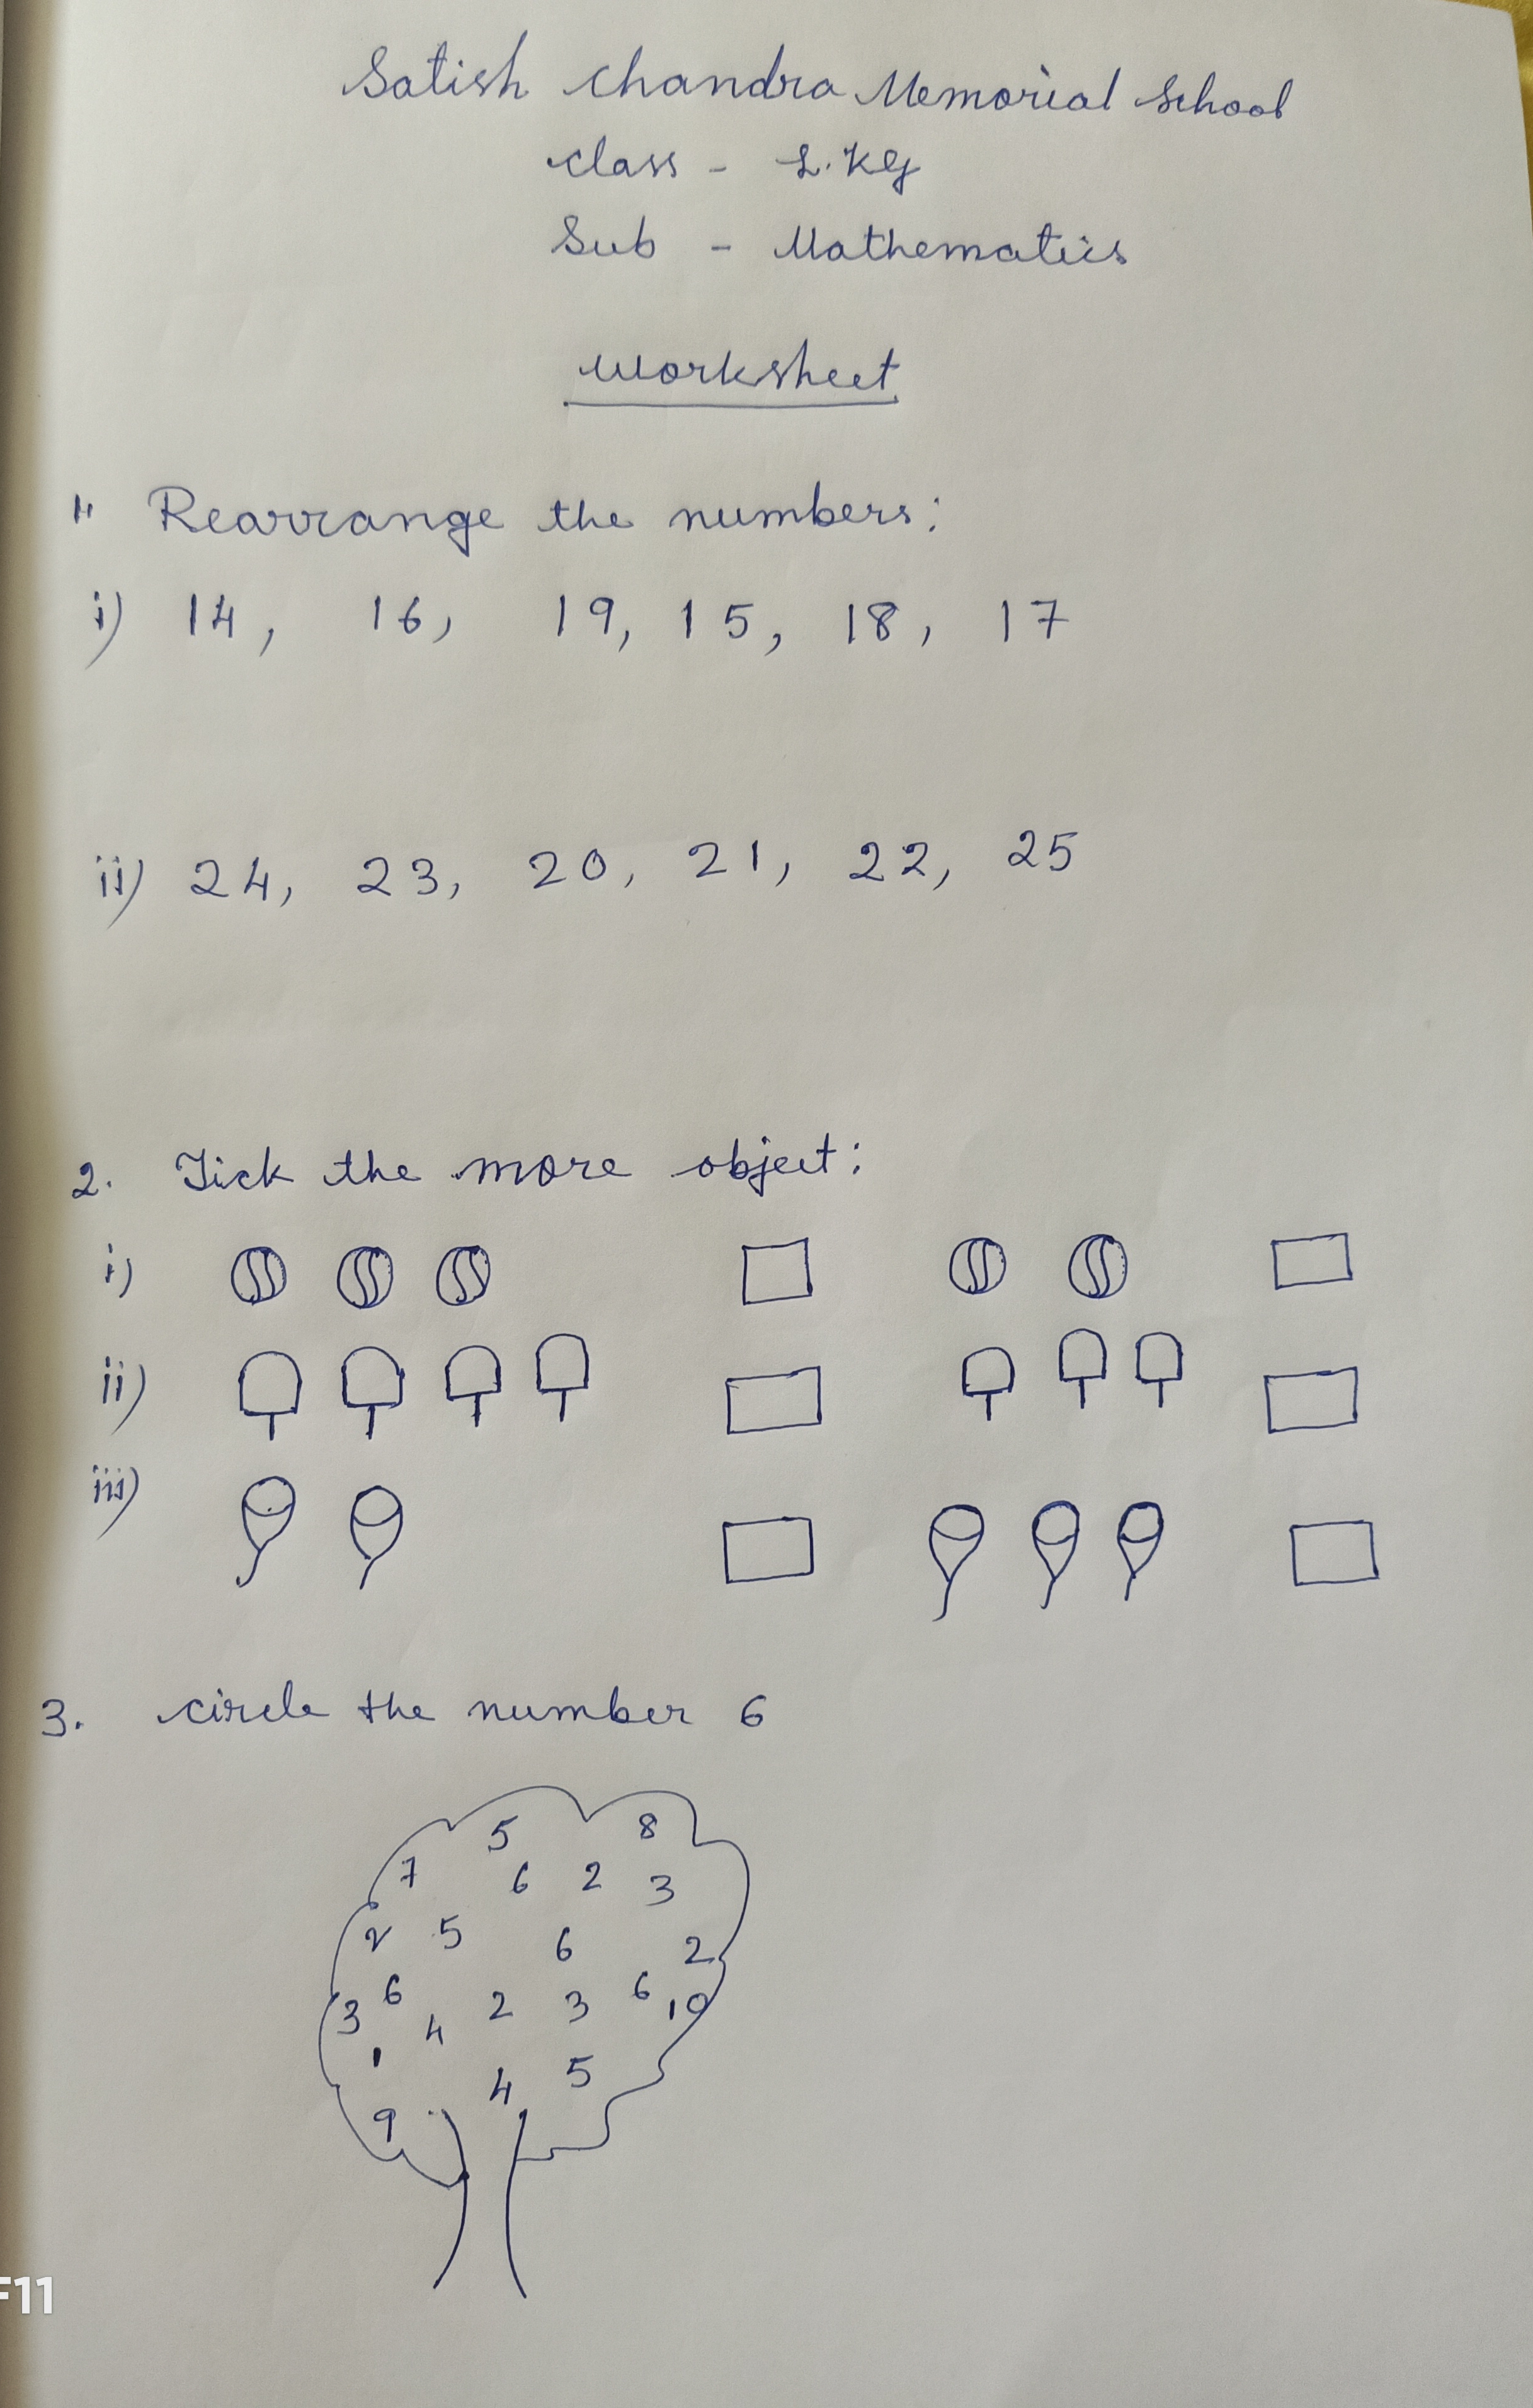 Satish Chandra Memorial School
Class - L.KG
Sub - Mathematics
Worksheet
1. Rearrange the numbers:
i) 14, 16, 19, 15, 18, 17
ii) 24, 23, 20, 21, 22, 25
2. Tick the more object:
i)
ii)
iii)
3. circle the number 6
5 8
7 6 2 3
2 5 6 2
3 6 4 2 3 6 10
1 4 5
9
F11